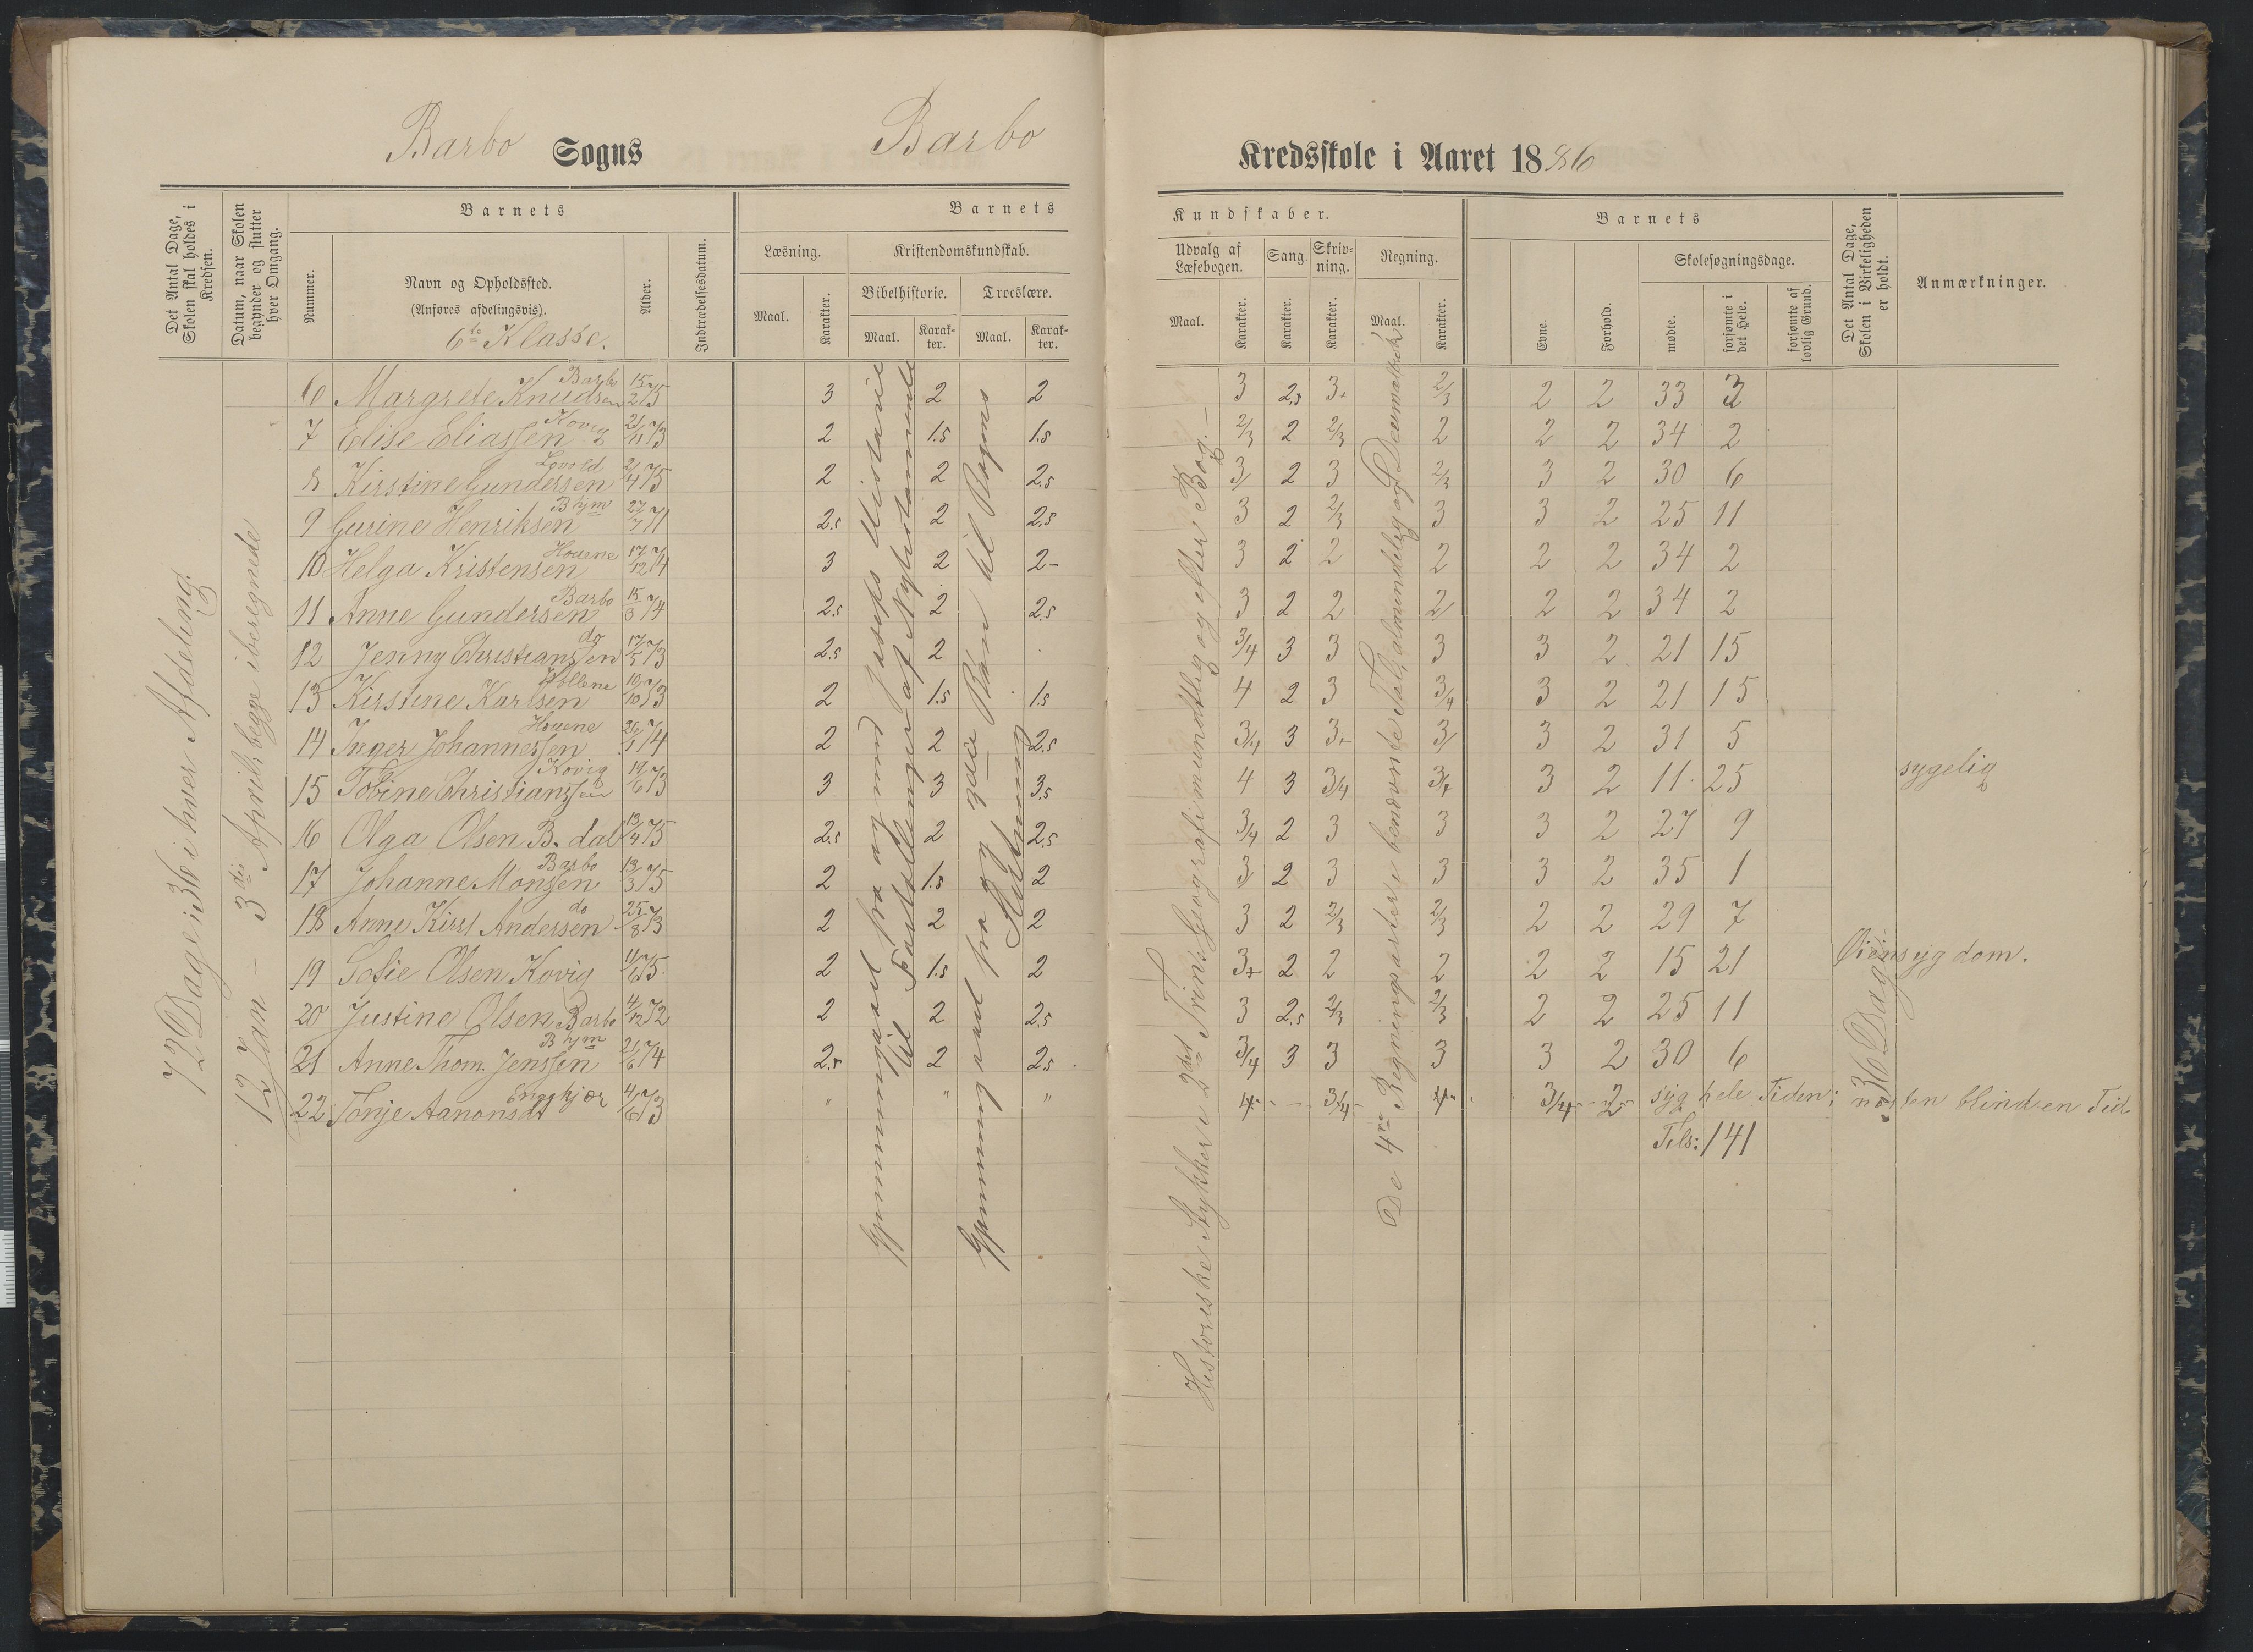 Barbo Sogns Barbo Kredsskole i Aaret 1886
Det Antal Dage, Skolen skal holdes i Kredsen.
Datum, naar Skolen begynder og slutter hver Omgang.
Barnets
Nummer.
Navn og Opholdssted.
(Anføres afdelingsvis).
6te Klasse.
Alder.
Indtrædelsesdatum.
Barnets Kundskaber.
Læsning.
Maal.
Karakter.
Kristendomskundskab.
Bibelhistorie.
Maal.
Karakter.
Troeslære.
Maal.
Karakter.
Udvalg af Læsebogen.
Maal.
Karakter.
Sang.
Karakter.
Skrivning.
Karakter.
Regning.
Maal.
Karakter.
Barnets
Evne.
Forhold.
Skolesøgningsdage.
mødte.
forsømte i det Hele.
forsømte af lovlig Grund.
Det Antal Dage, Skolen i Virkeligheden er holdt.
Anmærkninger.
72 Dage: 36 i hver Afdeling.
12 Jan – 3die April, begge iberegnede
Gjennemgaaet fra og med Josefs Historie
til Fortællinger af Nytestamente
Gjennemgaaet fra og 3die Bøn til Bogens
Slutning
Historiske Stykker i 2det Trin: Geografi mundtlig og efter Bog. –
De 4re Regningsarter i benævnte Tal, almindelig og Decimalbrøk
36 Dage
6 Margrete Knudsen Barbo 15/2 75 3 2 2 3 2.5 3+ 2/3 2 2 33 3
7 Elise Eliassen Kovig 21/11 73 2 1.5 1.5 2/3 2 2/3 2 2 2 34 2
8 Kirstine Gundersen Lovold 2/4 75 2 2 2.5 3/ 2 3 2/3 3 2 30 6
9 Gurine Henriksen B hjm 27/7 71 2.5 2 2.5 3 2 2/3 3 3 2 25 11
10 Helga Kristensen Houene 17/12 74 3 2 2- 3 2 2 2 2 2 34 2
11 Anne Gundersen Barbo 15/3 74 2.5 2 2.5 3 2 2 2/ 2 2 34 2
12 Jenny Christianssen do 17/5 73 2.5 2 3/4 3 3 3 3 2 21 15
13 Kirstine Karlsen 10/10 73 2 1.5 1.5 4 2 3 3/4 3 2 21 15
14 Inger Johannessen Houene 74 2 2 2.5 3/4 3 3+ 3/ 3 2 31 5
15 Tobine Christianssen Kovig 19/6 73 3 3 3.5 4 3 3/4 3/4 3 2 11 25 sygelig
16 Olga Olsen B. dal 13/4 75 2.5 2 2.5 3/4 2 3 3 3 2 27 9
17 Johanne Monsen Barbo 13/3 75 2 1.5 2 3/ 2 3 3 3 2 35 1
18 Anne Kirst Andersen do 25/8 73 2 2 2 3 2 2/3 2/3 2 2 29 7
19 Sofie Olsen Kovig 11/6 75 2 1.5 2 3+ 2 2 2 2 2 15 21 Øiensygdom.
20 Justine Olsen Barbo 4/12 72 2 2 2.5 3 2.5 2/3 2/3 2 2 25 11
21 Anne Thom. Jenssen B hjm 21/6 74 2.5 2 2.5 3/4 3 3 3 3 2 30 6
22 Tonje Aanonsdt 4/6 73 " " " 4 – 3/4 4 3/4 2 syg hele Tiden; næsten blind en Tid.
Tils: 141